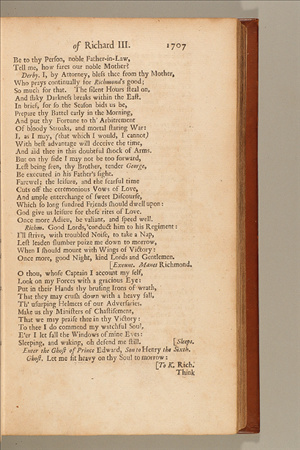 of Richard III. 1707
Be to thy Person, noble Father-in-Law,
Tell me, how fares our noble Mother?
Derby. I, by Attorney, bless thee from thy Mother,
Who prays continually for Richmond's good;
So much for that. The silent Hours steal on,
And flaky Darkness breaks within the East.
In brief, for so the Season bids us be,
Prepare thy Battel early in the Morning,
And put thy Fortune to th' Arbitrement
Of bloody Stroaks, and mortal staring War:
I, as I may, (that which I would, I cannot)
With best advantage will deceive the time,
And aid thee in this doubtful shock of Arms.
But on thy side I may not be too forward,
Left being seen, thy Brother, tender George,
Be executed in his Father's sight.
Farewel; the leisure, and the fearful time
Cuts off the ceremonious Vows of Love,
And ample enterchange of sweet Discourse,
Which so long sundred Friends should dwell upon:
God give us leisure for these rites of Love.
Once more Adieu, be valiant, and speed well.
Richm. Good Lords, conduct him to his Regiment:
I'll strive, with troubled Noise, to take a Nap,
Left leaden slumber poize me down to morrow,
When I should mount with Wings of Victory:
Once more, good Night, kind Lords and Gentlemen.
[Exeunt. Manet Richmond.
O thou, whose Captain I account my self,
Look on my Forces with a gracious Eye:
Put in their Hands thy bruising Irons of wrath,
That they may crush down with a heavy fall,
Th' usurping Helmets of our Adversaries.
Make us thy Ministers of Chastisement,
That we may praise thee in thy Victory:
To thee I do commend my watchful Soul,
E'er I let fall the Windows of mine Eyes:
Sleeping, and waking, oh defend me still. [Sleeps.
Enter the Ghost of Prince Edward, Son to Henry the Sixth.
Ghost. Let me sit heavy on thy Soul to morrow:
[To K. Rich.
Think